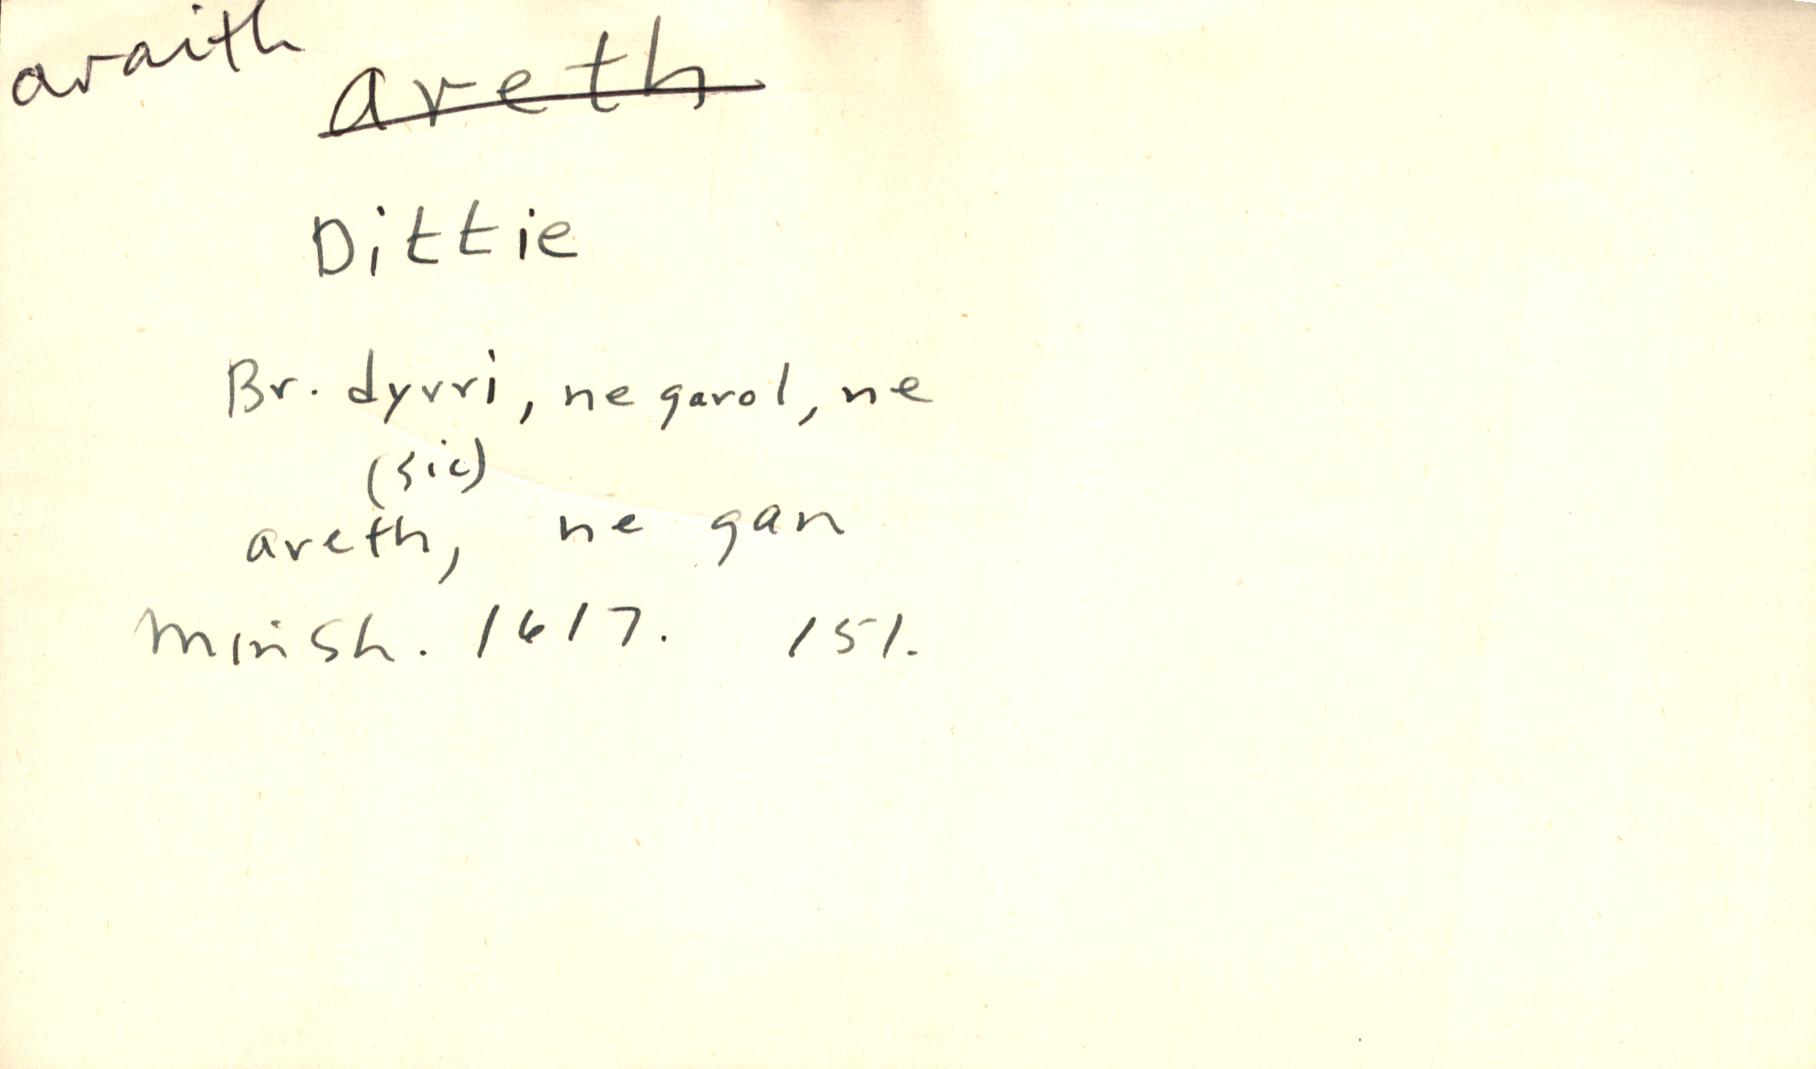 araith
areth
Dittie
Br. dyrri, ne garol, ne
(sic)
areth, ne gan
Minsh. 1617. 151.